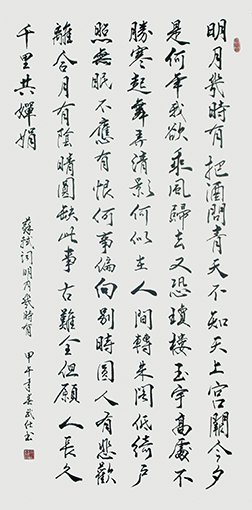 明月幾時有把酒問青天不知天上宮闕今夕
是何年我欲乘風歸去又恐瓊樓玉宇高處不
勝寒起舞弄清影何似在人間轉朱閣低綺戶
照無眠不應有恨何事偏向別時圓人有悲歡
離合月有陰晴圓缺此事古難全但願人長久
千里共嬋娟
蘇軾詞明月幾時有 甲午年春武仕書